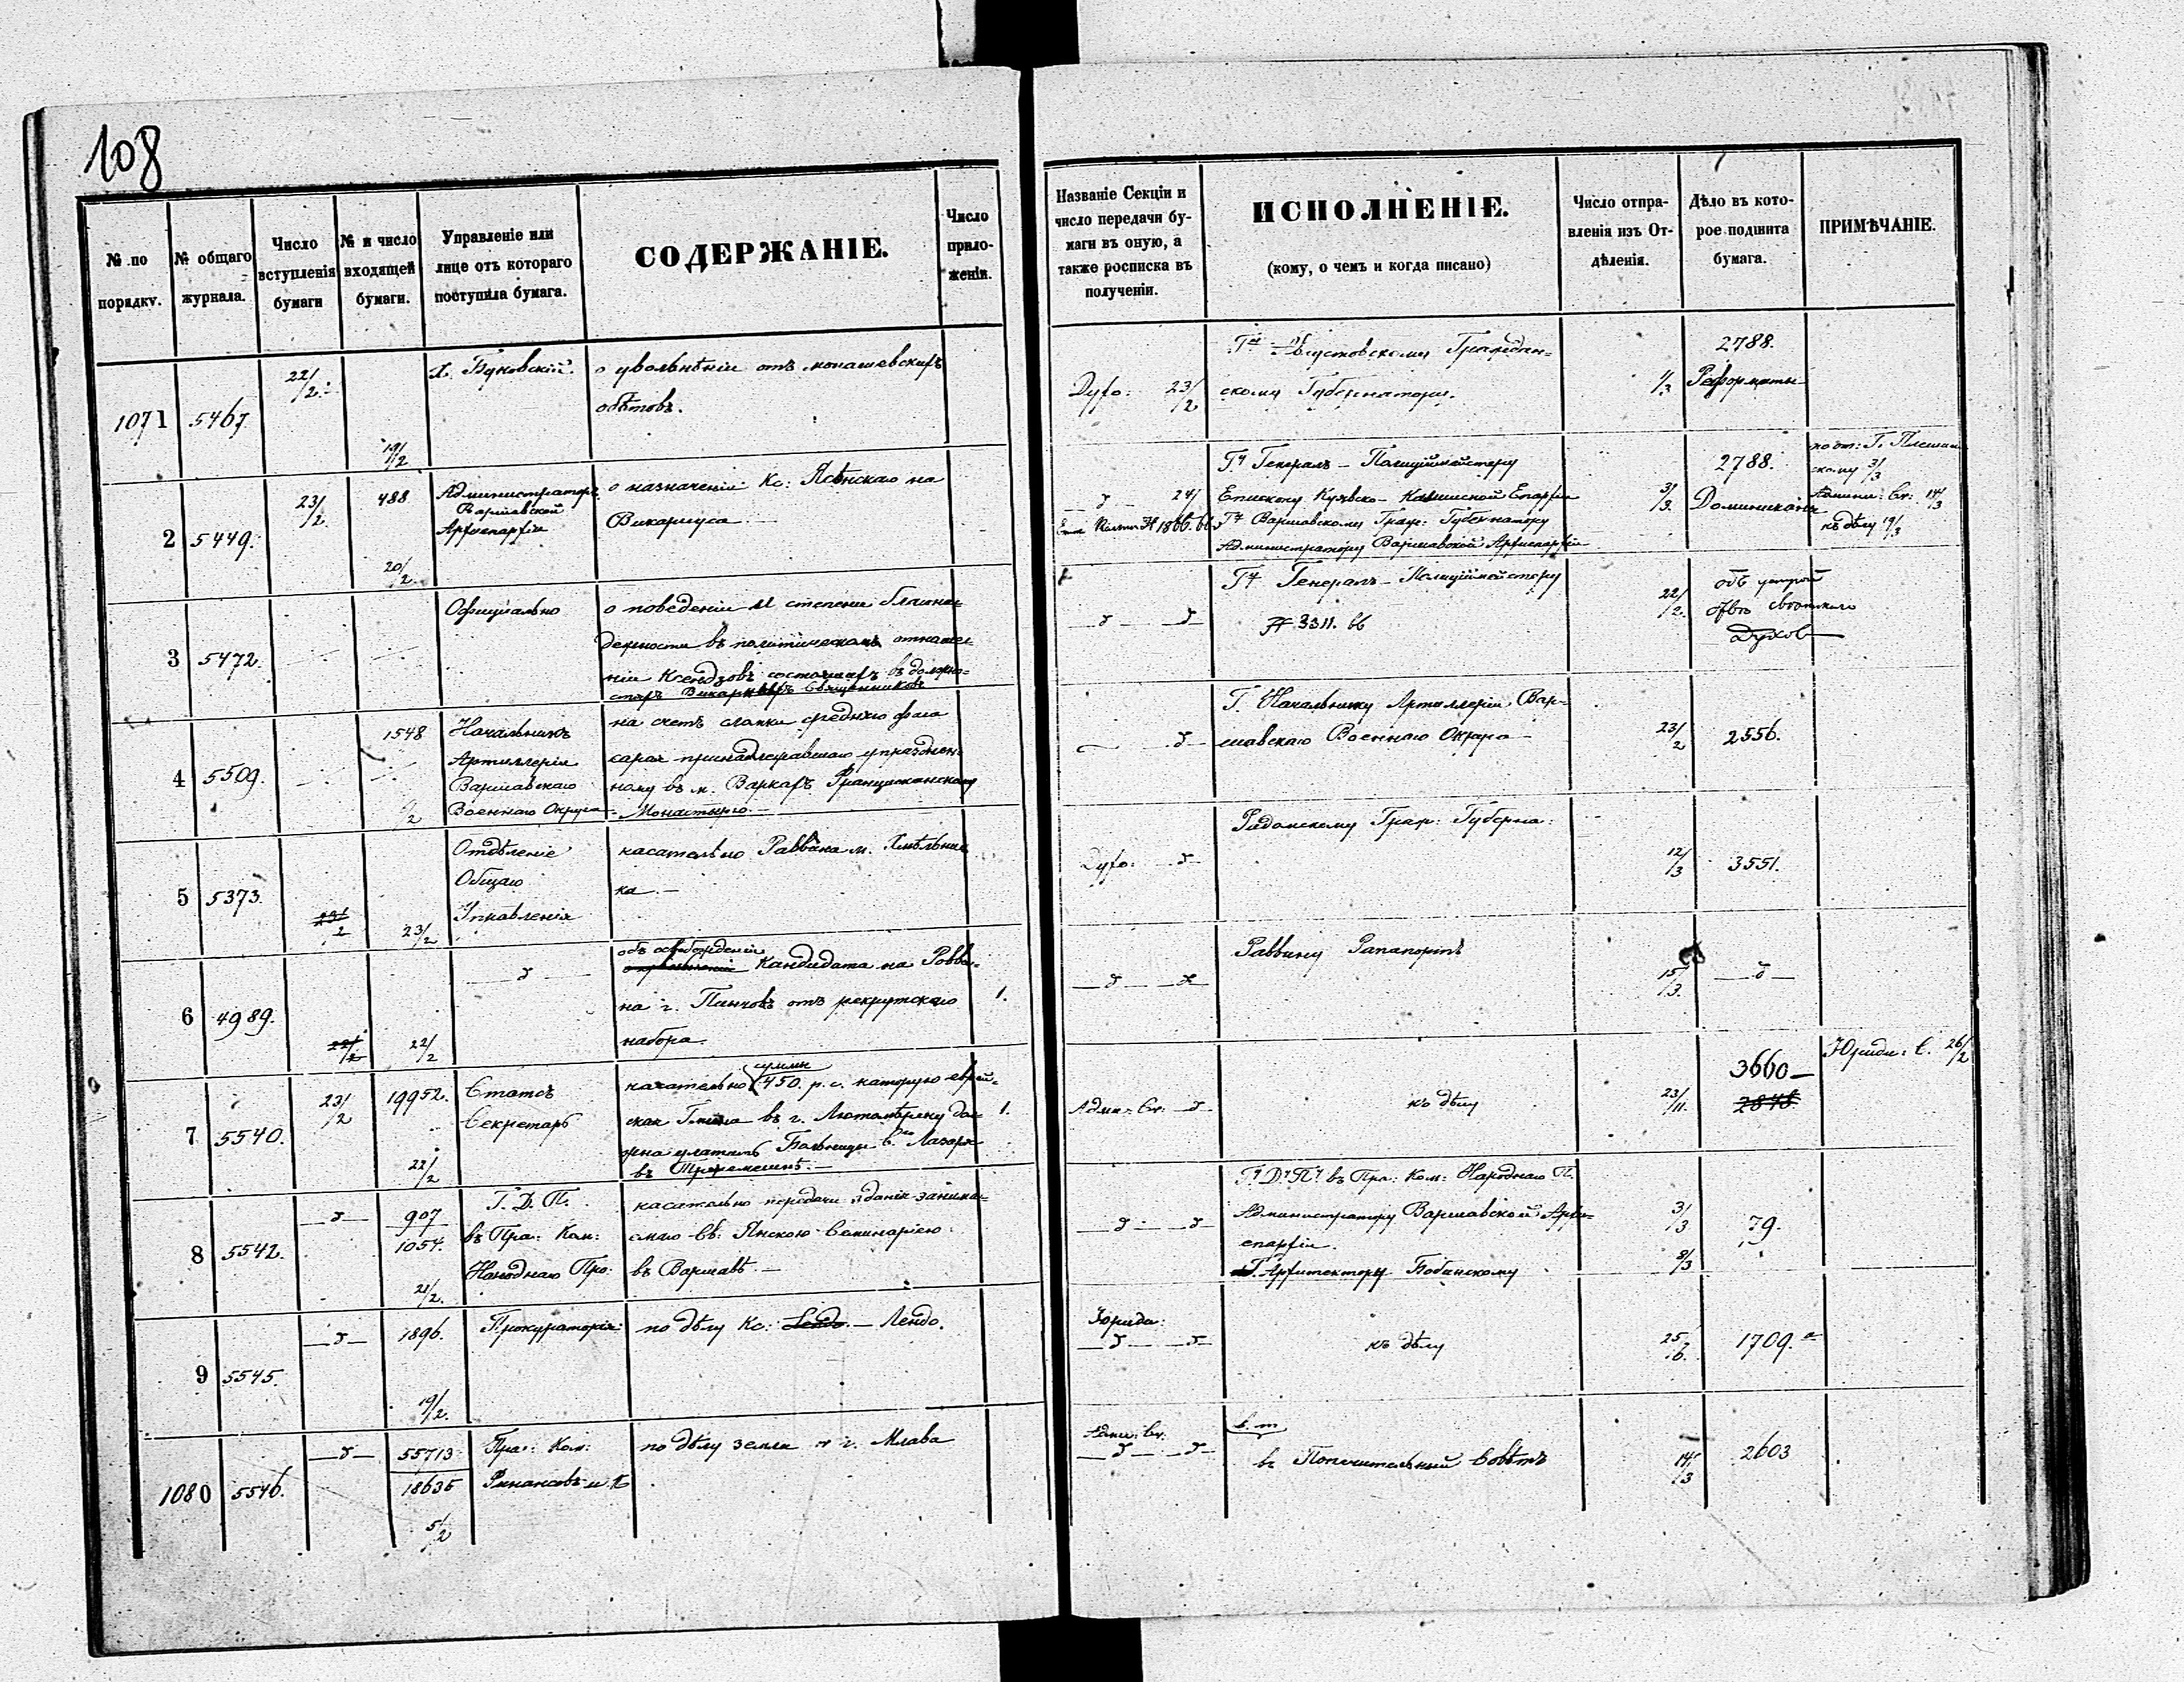 108
№ по
порядку.
№ общаго
журнала.
Число
вступленія
бумаги
№ и число
входящей
бумаги.
Управленіе или
лице отъ котораго
поступила бумага.
СОДЕРЖАНІЕ.
Число
прило-
женія.
Названіе Секціи и
число передачи бу-
маги въ оную, а
также росписка въ
полученіи.
ИСПОЛНЕНІЕ.
(кому, о чемъ и когда писано)
Число отпра-
вленія изъ От-
дѣленія.
Дѣло въ кото-
рое подшита
бумага.
ПРИМѢЧАНІЕ.
1071
5467
22/2
19/2
о увольнѣніи отъ монашевскихъ
обѣтовъ.
Духо: 23/2
Августовскому Граждан-
скому Губернатору.
1/3
2788.
Реформаты
2
5449.
23/2
488
20/2
Администраторъ
Варшавской
Архіепархіи
о назначеніи Кс: Ясѣнскаго на
Викаріуса
24/
Гну Генералъ-Полиціймейстеру
Епископу Куявско-Калишской Епархіи
Гну Варшавскому Граж: Губернатору
Администратору Варшавской Архіепархіи
3/3.
2788.
Доминикане
3/3
Админи: Св: 14/3
къ дѣлу 19/3
3
5472.
Офиціально
о поведеніи и степени благона-
дежности въ политическомъ отноше-
ніи Ксендзовъ состоящихъ въ должно-
стяхъ Викарныхъ Священниковъ
Гну Генералъ-Полиціймейстеру
№ 3311. 66
22/2.
объ
Духов
4
5509.
1548
/2
Начальникъ
Артиллеріи
Варшавскаго
Военнаго Округа
на счетъ
сарая принадлежавшаго упразднен-
ному въ м. Варкахъ Францисканскому
Монастырю.
Г. Начальнику Артиллеріи Вар-
шавскаго Военнаго Округа
23/2
2556.
5
5373.
23/2
23/2
Отдѣленіе
Общаго
Управленія
касательно Раввина м. Хмѣльни-
ка.
Духо:
Радомскому Граж: Губерна:
12/3
3551.
6
4989.
22/2
22/2
объ освобожденіи
Кандидата на Равви-
на г. Пинчовъ отъ рекрутскаго
набора
1.
Раввину Рапапортъ
15/3.
7
5540.
23/2
19952.
22/2
Статсъ
Секретарь
суммы
касательно 450. р. с. которую еврей-
ская Гмина въ г. Лютомѣрску дол-
жна уплатить Больницы Сго Лазаря
въ
1.
Адми: Св:
къ дѣлу
23/11.
3660
2848.
Юриди: С. 26/2
8
5542.
907
1054.
21/2.
Г. Д. П.
въ Пра: Ком:
Народнаго Про:
касательно передачи зданія занима-
емаго Св: Янскою Семинаріею
въ Варшавѣ.
Гу Ду Пу въ Пра: Ком: Народнаго П.
Администратору Варшавской Архі-
епархіи.
Г. Архитектору Бобинскому
3/3
8/3
79.
9
5545.
1896.
19/2.
Прокураторія:
по дѣлу Кс: Лендо. — Лендо.
Юриди:
къ дѣлу
25/6.
1709.а
1080
5546.
55713
18635
5/2
Пра: Ком:
Финансовъ и К
по дѣлу земли г. Млава
Адми: Св:
в. т.
въ Попечительный Совѣтъ
14/3
2603